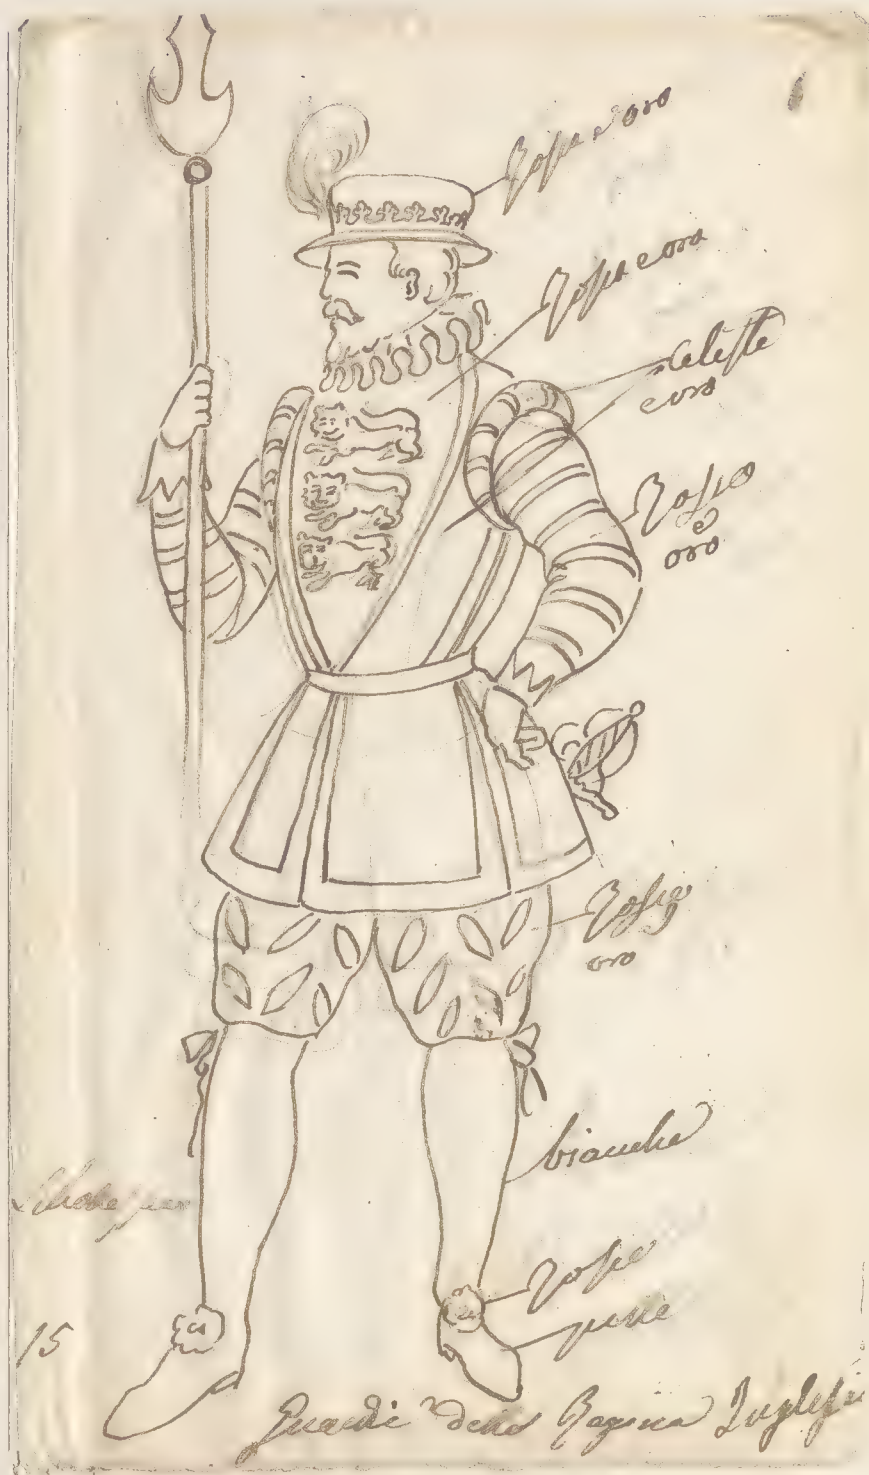 Rossa e oro
Rossa e oro
celeste
e oro
Rosso
e
oro
Rosso
oro
bianche
Rosso
pelle
15
Guardie della Regina Inglese